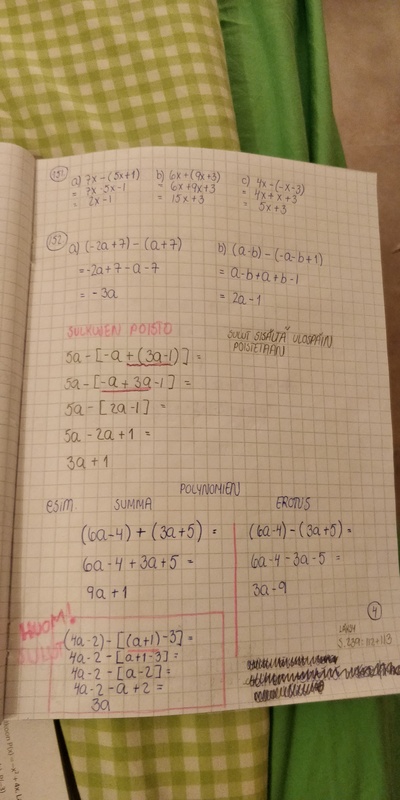 151
a) 7x-(5x+1)
= 7x-5x-1
= 2x-1
b) 6x+(9x+3)
= 6x+9x+3
= 15x+3
c) 4x-(-x-3)
= 4x+x+3
= 5x+3
152
a) (-2a+7)-(a+7)
= -2a+7-a-7
= -3a
b) (a-b)-(-a-b+1)
= a-b+a+b-1
= 2a-1
SULKUJEN POISTO
SULUT SISÄLTÄ ULOSPÄIN
POISTETAAN
5a-[-a+(3a-1)] =
5a-[-a+3a-1] =
5a-[2a-1] =
5a-2a+1 =
3a+1
POLYNOMIEN
esim. SUMMA
(6a-4)+(3a+5) =
6a-4+3a+5 =
9a+1
EROTUS
(6a-4)-(3a+5) =
6a-4-3a-5 =
3a-9
HUOM!
SULUT
(4a-2)-[(a+1)-3] =
4a-2-[a+1-3] =
4a-2-[a-2] =
4a-2-a+2 =
3a
4
S. 239: 112+113